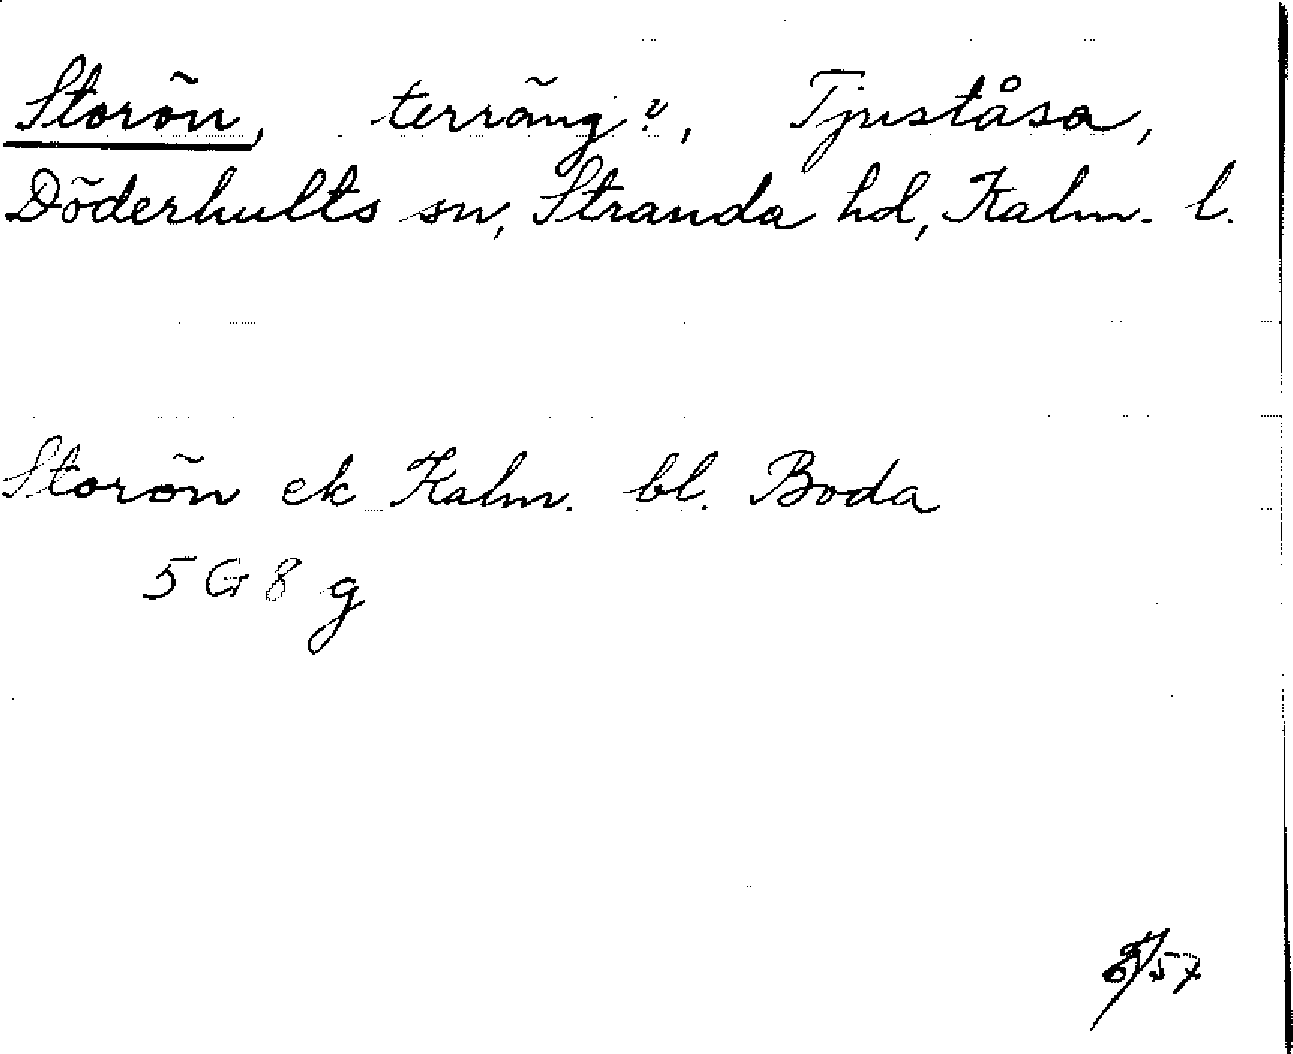 Storön, terräng?, Tjuståsa,
Döderhults sn, Stranda hd, Kalm. l.
Storön ek Kalm. bl. Boda
5 G 8 g